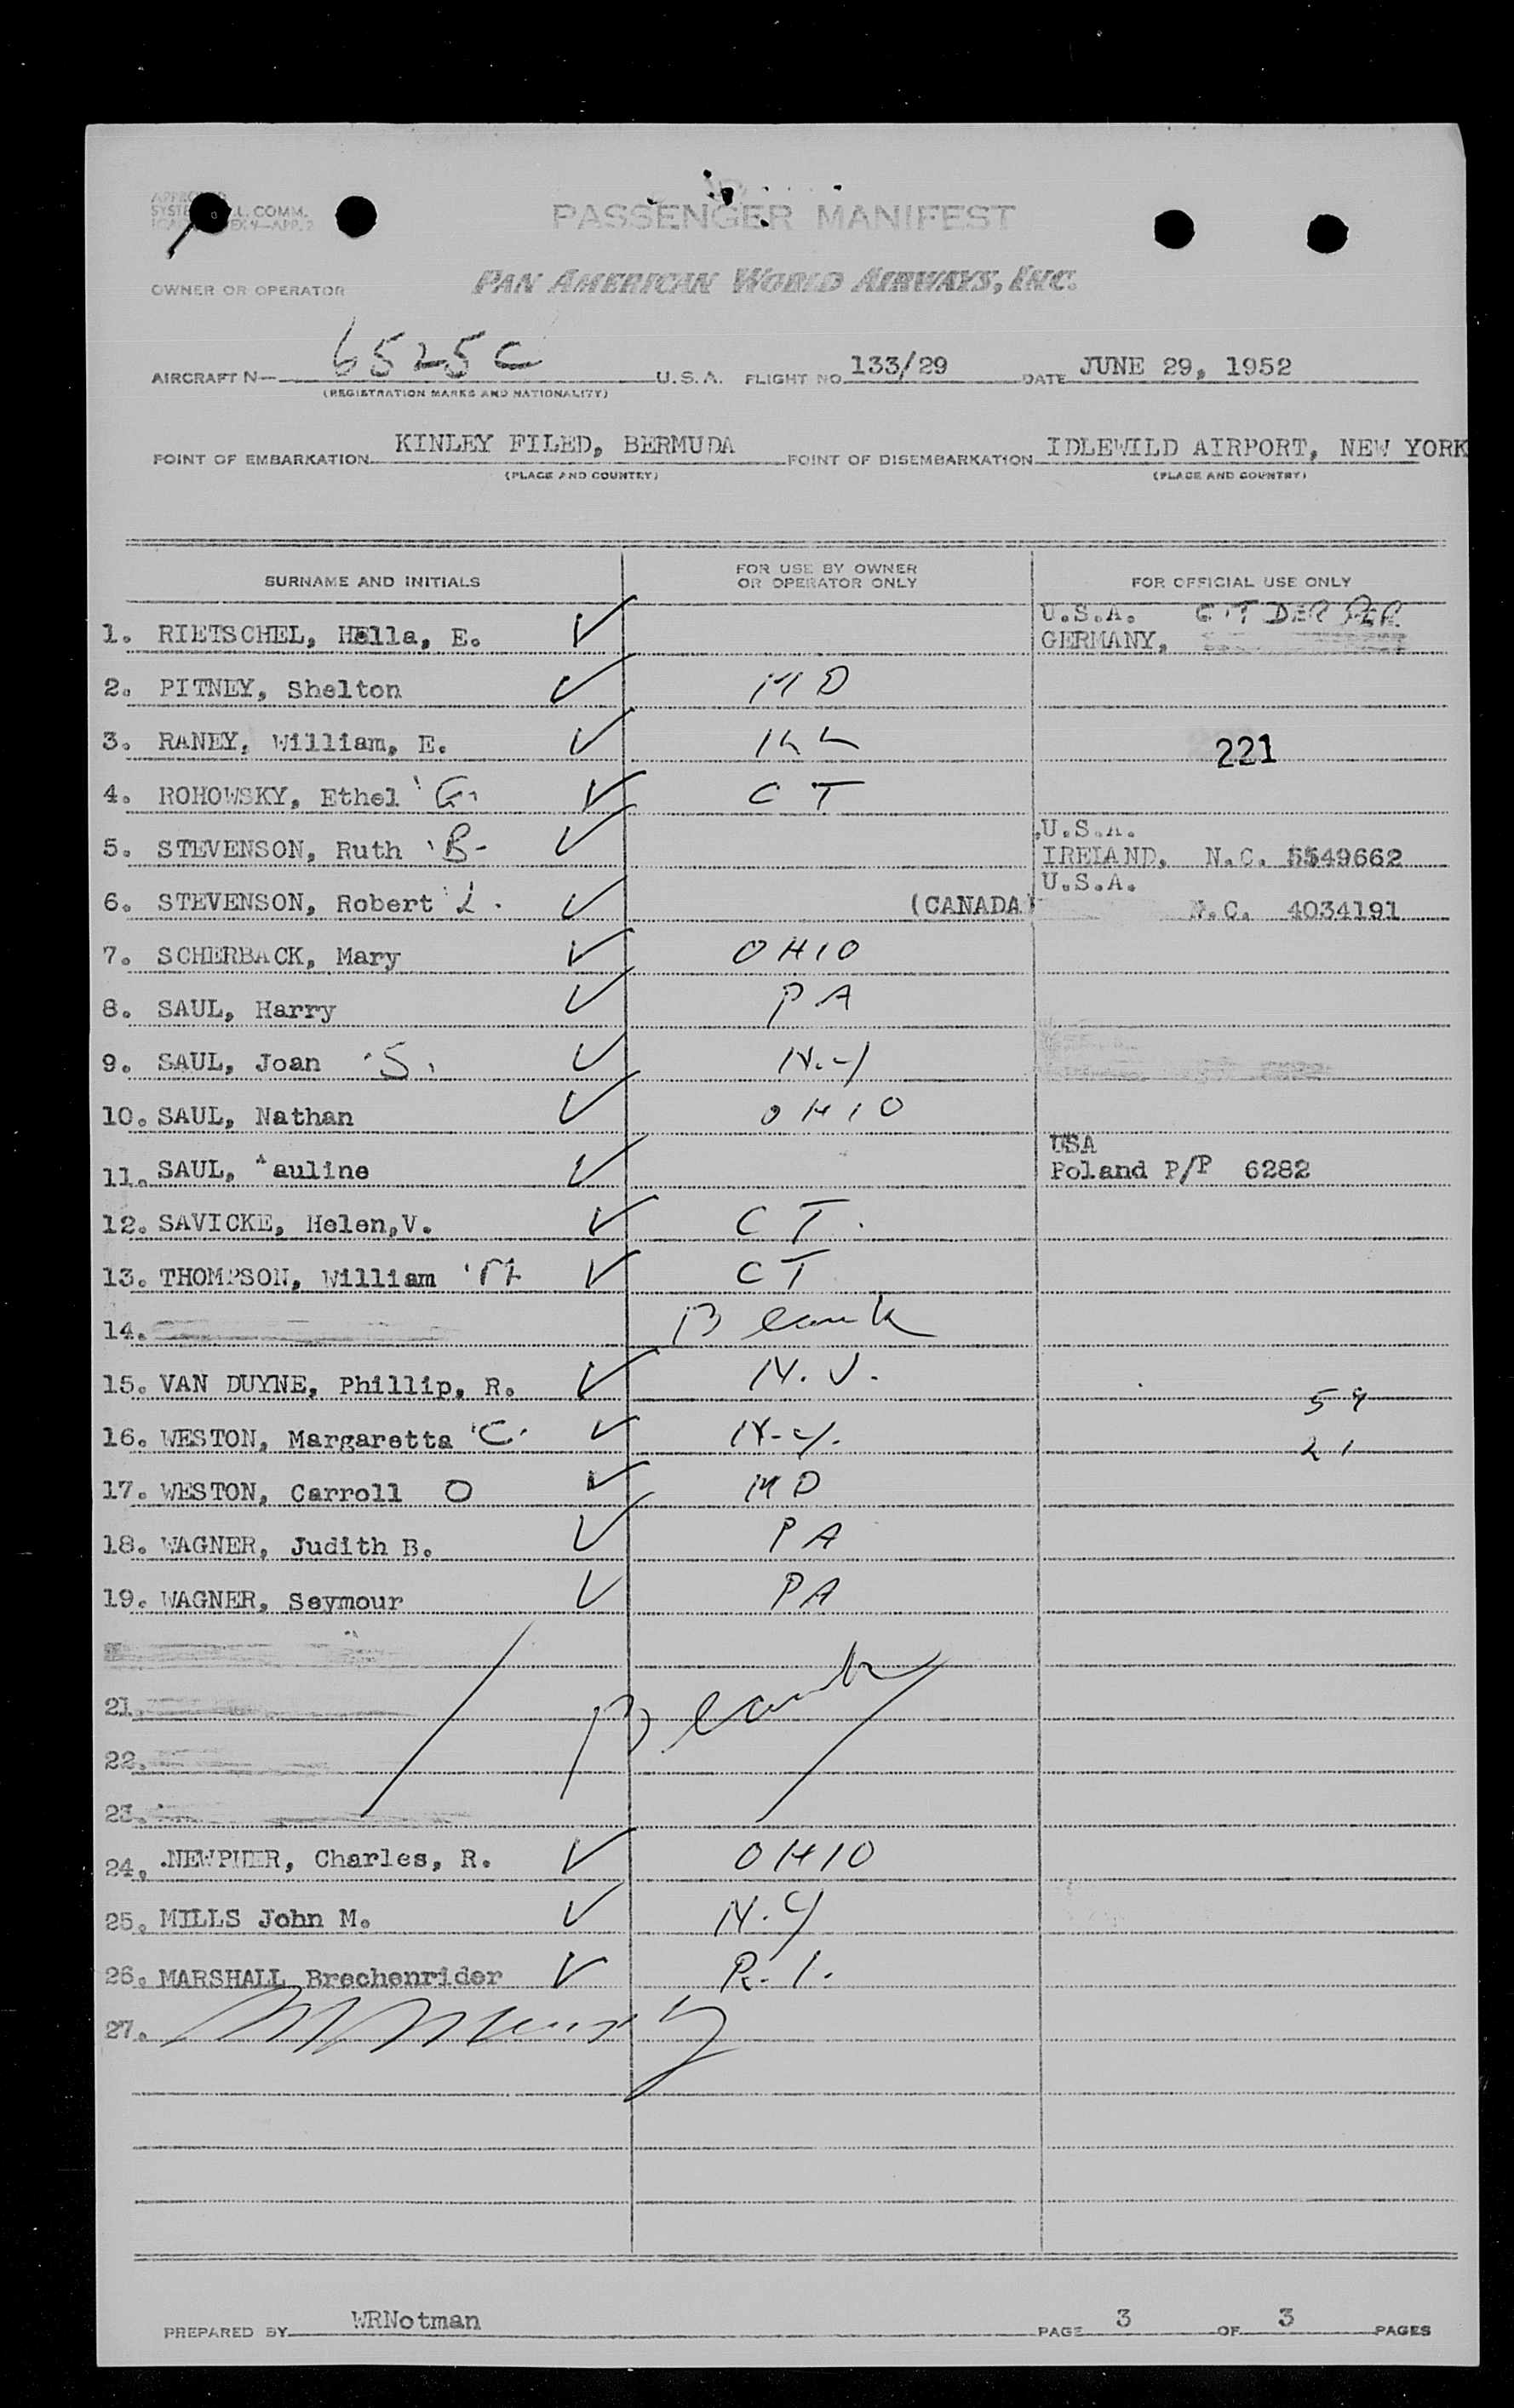 PASSENGER MANIFEST
APPROVED
SYSTEM COMM.
OWNER OR OPERATOR PAN AMERICAN WORLD AIRWAYS, INC.
AIRCRAFT N— 6525C U.S.A. FLIGHT NO. 133/29 DATE JUNE 29, 1952
(REGISTRATION MARKS AND NATIONALITY)
POINT OF EMBARKATION KINLEY FILED, BERMUDA POINT OF DISEMBARKATION IDLEWILD AIRPORT, NEW YORK
(PLACE AND COUNTRY) (PLACE AND COUNTRY)
SURNAME AND INITIALS FOR USE BY OWNER OR OPERATOR ONLY FOR OFFICIAL USE ONLY
U.S.A. CIT DER PER
1. RIETSCHEL, Hella, E. ✓ GERMANY,
2. PITNEY, Shelton ✓ MD
3. RANEY, William, E. ✓ 221
4. ROHOWSKY, Ethel G. ✓ CT
U.S.A.
5. STEVENSON, Ruth B. ✓ IRELAND, N.C. 5549662
U.S.A.
6. STEVENSON, Robert L. ✓ (CANADA) N.C. 4034191
7. SCHERBACK, Mary ✓ OHIO
8. SAUL, Harry ✓ PA
9. SAUL, Joan S. ✓ N.Y
10. SAUL, Nathan ✓ OHIO
USA
11. SAUL, auline ✓ Poland P/P 6282
12. SAVICKE, Helen,V. ✓ CT.
13. THOMPSON, William ✓ CT
14. Blank
15. VAN DUYNE, Phillip, R. ✓ N.J. 59
16. WESTON, Margaretta C. ✓ N.Y. 21
17. WESTON, Carroll O ✓ MD
18. WAGNER, Judith B. ✓ PA
19. WAGNER, Seymour ✓ PA
21. Blank
22.
23.
24. NEWPHER, Charles, R. ✓ OHIO
25. MILLS John M. ✓ N.Y
26. MARSHALL Brechenrider ✓ R.I.
27.
PREPARED BY WRNotman PAGE 3 OF 3 PAGES